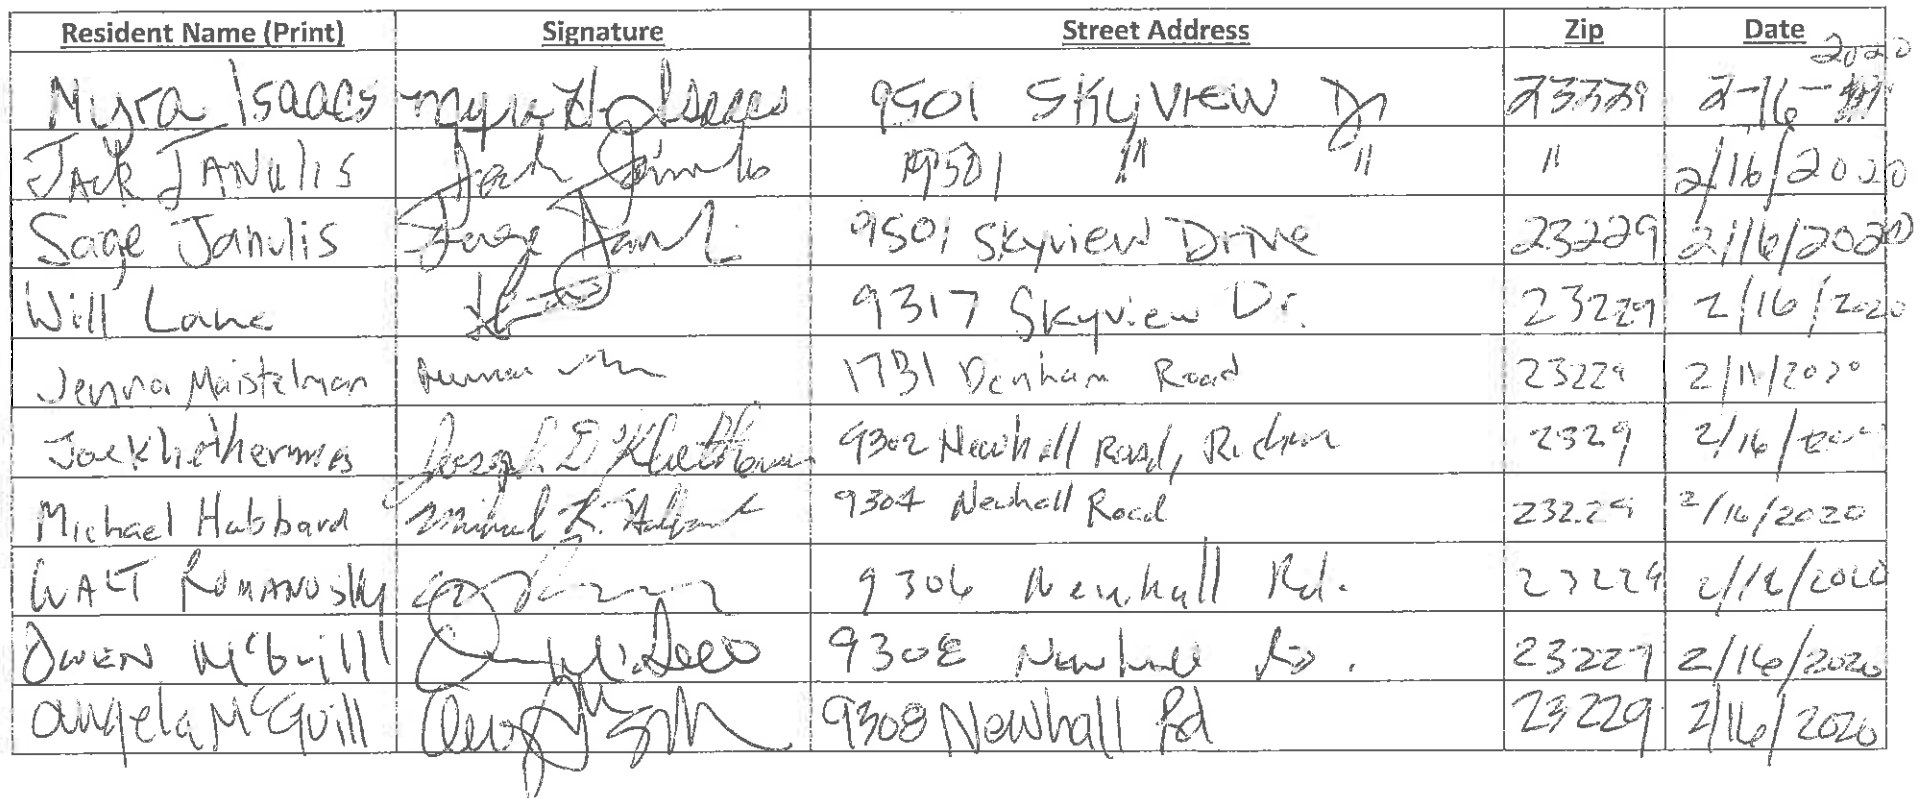 Resident Name (Print) Signature Street Address Zip Date
2020
Myra Isaacs Myra H. Isaacs 9501 SKYVIEW Dr 23229 2-16-
JACK JANULIS Jack Janulis 9501 " " " 2/16/2020
Sage Janulis Sage Janulis 9501 Skyview Drive 23229 2/16/2020
Will Lane 9317 Skyview Dr. 23229 2/16/2020
Jenna Maistelman 1731 Denham Road 23229 2/16/2020
Joseph D 9302 Newhall Road, 2329 2/16/
Michael Hubbard Michael R. Hubbard 9304 Newhall Road 23229 2/16/2020
WALT ROMANOSKY 9306 Newhall Rd. 23229 2/16/2020
OWEN McGuill 9308 Newhall Rd. 23229 2/16/2020
Angela McGuill 9308 Newhall Rd 23229 2/16/2020